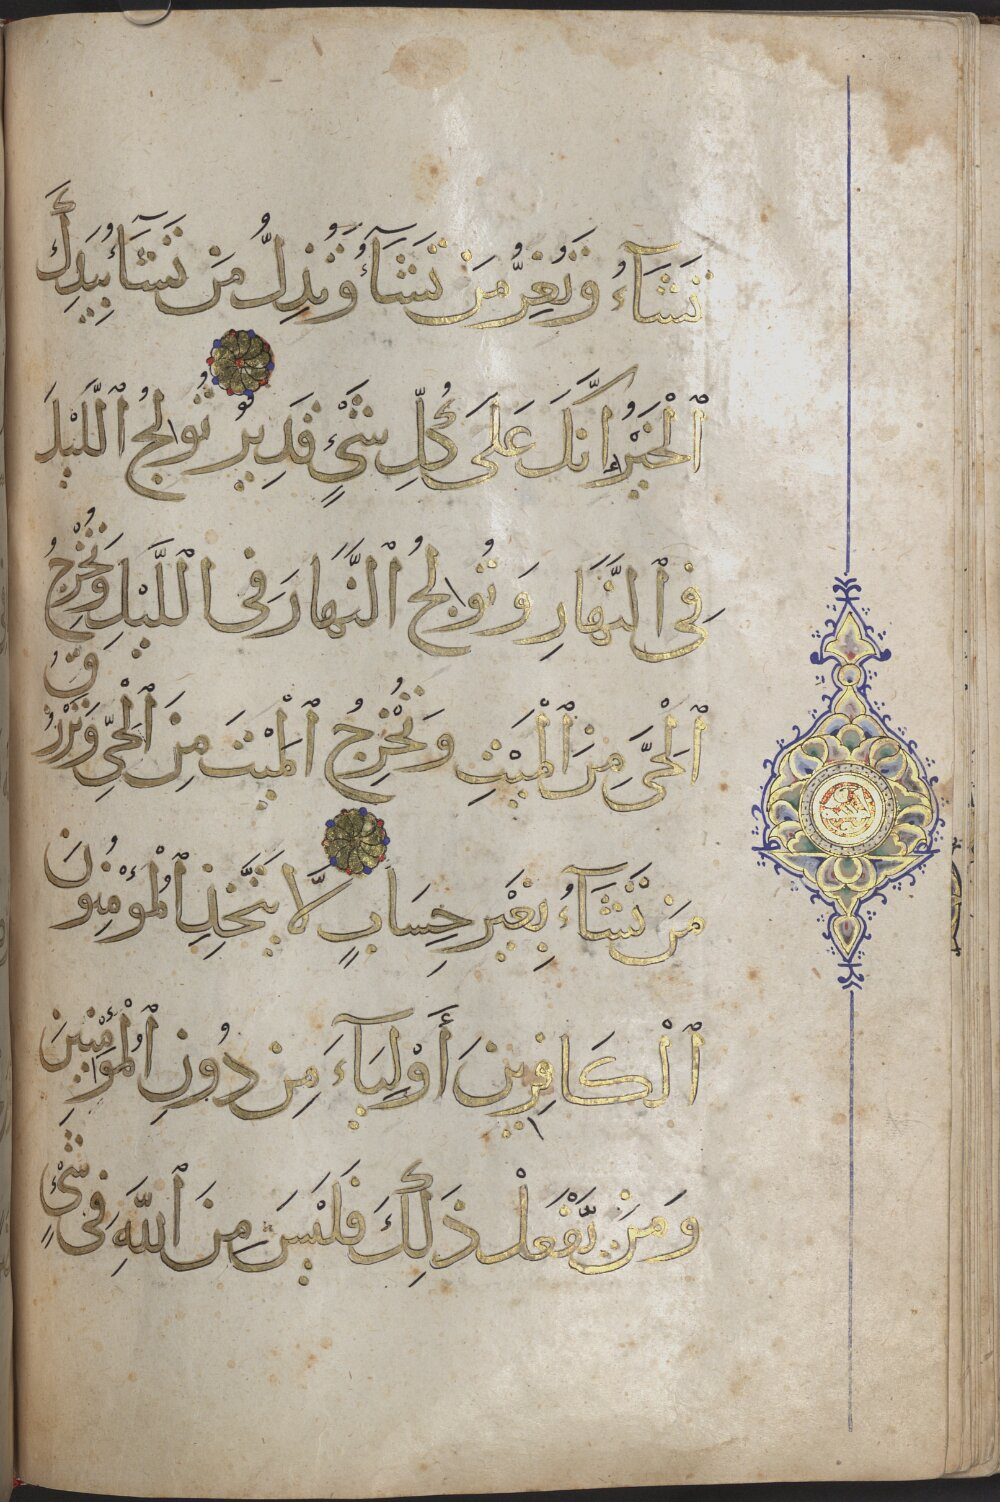 تَشَآءُ وَتُعِزُّ مَن تَشَآءُ وَتُذِلُّ مَن تَشَآءُ بِيَدِكَ
ٱلْخَيْرُ إِنَّكَ عَلَى كُلِّ شَىْءٍ قَدِيرٌ تُولِجُ ٱللَّيْلَ
فِى ٱلنَّهَارِ وَتُولِجُ ٱلنَّهَارَ فِى ٱللَّيْلِ وَتُخْرِجُ
ٱلْحَىَّ مِنَ ٱلْمَيِّتِ وَتُخْرِجُ ٱلْمَيِّتَ مِنَ ٱلْحَىِّ وَتَرْزُقُ
مَن تَشَآءُ بِغَيْرِ حِسَابٍ لَّا يَتَّخِذِ ٱلْمُؤْمِنُونَ
ٱلْكَافِرِينَ أَوْلِيَآءَ مِن دُونِ ٱلْمُؤْمِنِينَ
وَمَن يَفْعَلْ ذَلِكَ فَلَيْسَ مِنَ ٱللَّهِ فِى شَىْءٍ